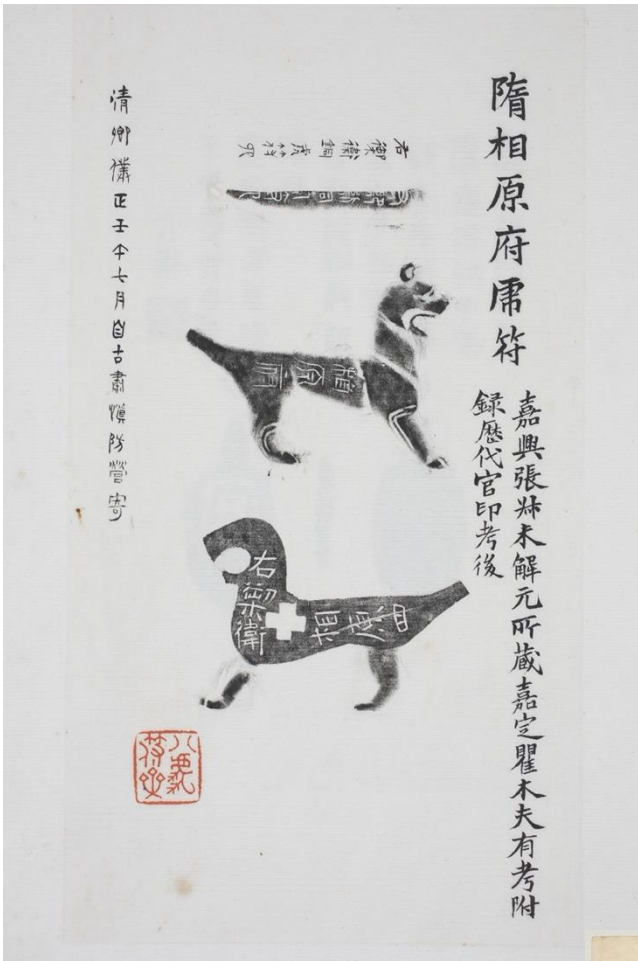 隋相原府虎符
嘉興張叔未解元所藏嘉定瞿木夫有考附
錄歷代官印考後
右禦衛銅虎符四
相原府
右禦衛
相原四
清卿儀正壬午七月自古肅慎防營寄
八虎符齋